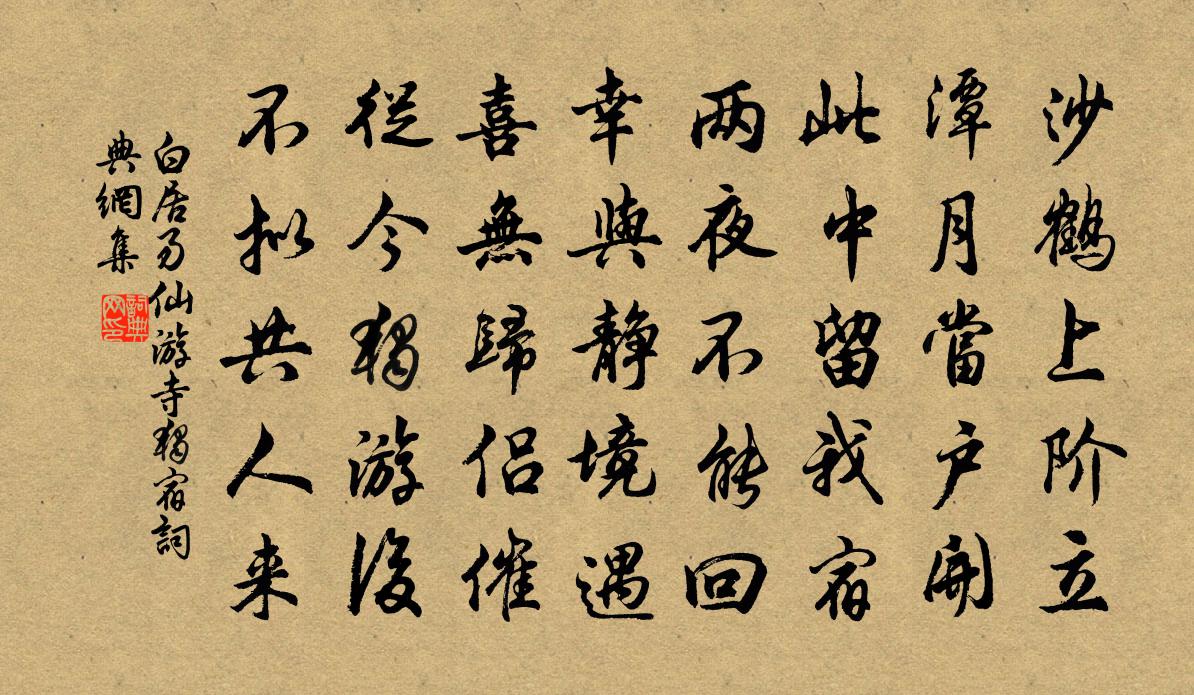 沙鶴上阶立
潭月當户開
此中留我宿
两夜不能回
幸與静境遇
喜無歸侣催
從今獨游後
不拟共人来
白居易仙游寺獨宿詞
典網集
詞典
网印